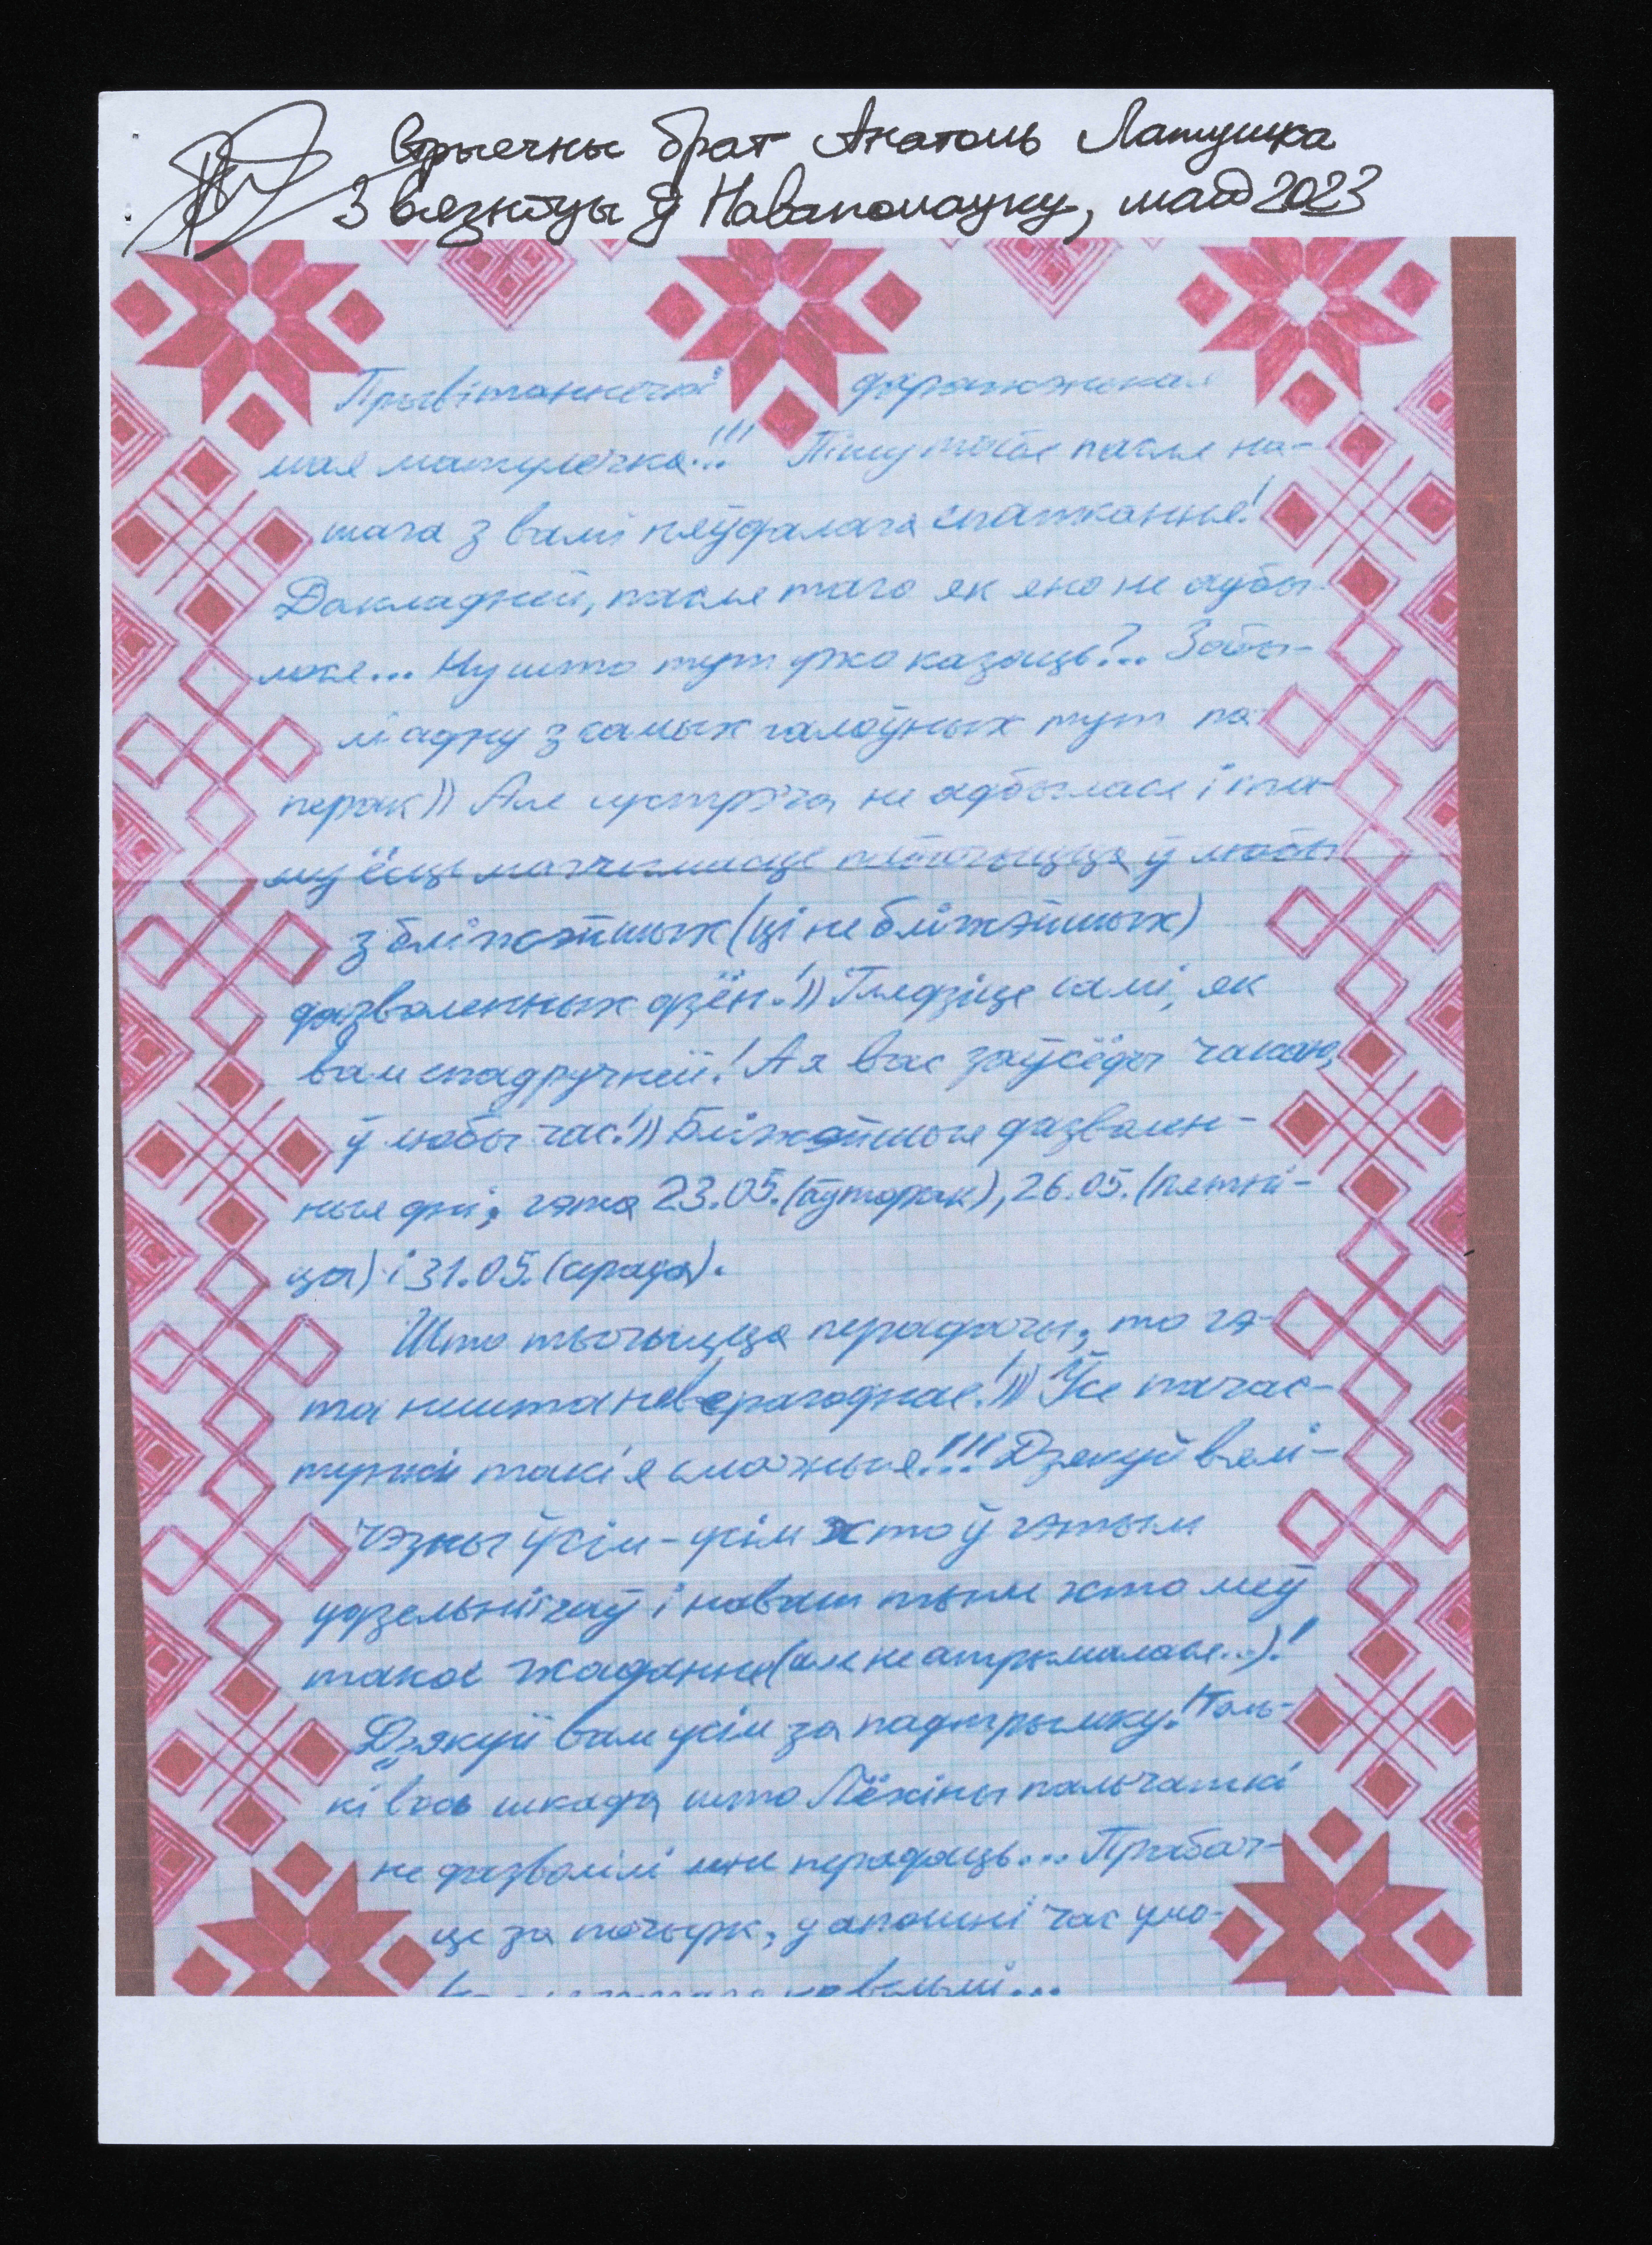 стрыечны брат Анатоль Латушка
З вязніцы ў Наваполацку, май 2023
Прывітаннечкі даражэнькая
мая матулечка!!! Пішу табе пасля на-
шага з вамі няўдалага спаткання!
Дакладней, пасля таго як яно не адбы-
лося... Ну што тут ужо казаць?.. Забы-
лі адну з самых галоўных тут па-
перак)) Але сустрэча не адбылася і та-
му ёсць магчымасць пабачыцца ў любы
з бліжэйшых (ці не бліжэйшых)
дазволенных дзён!)) Глядзіце самі, як
вам спадручней! А я вас заўсёды чакаю,
ў любы час!)) Бліжэйшыя дазволен-
ныя дні, гэта 23.05. (аўторак), 26.05. (пятні-
ца) і 31.05. (серада).
Што тычыцца перадачы, то гэ-
та нешта неверагоднае!))) Усе пачас-
тункі такія смачныя!!! Дзякуй вялі-
чэзны ўсім-усім хто ў гэтым
удзельнічаў і нават тым хто меў
такое жаданне (але не атрымалася...)!
Дзякуй вам усім за падтрымку! Толь-
кі вось шкада, што Лёхіны пальчаткі
не дазволілі мне перадаць... Прабач-
це за почырк, у апошні час
не вельмі...